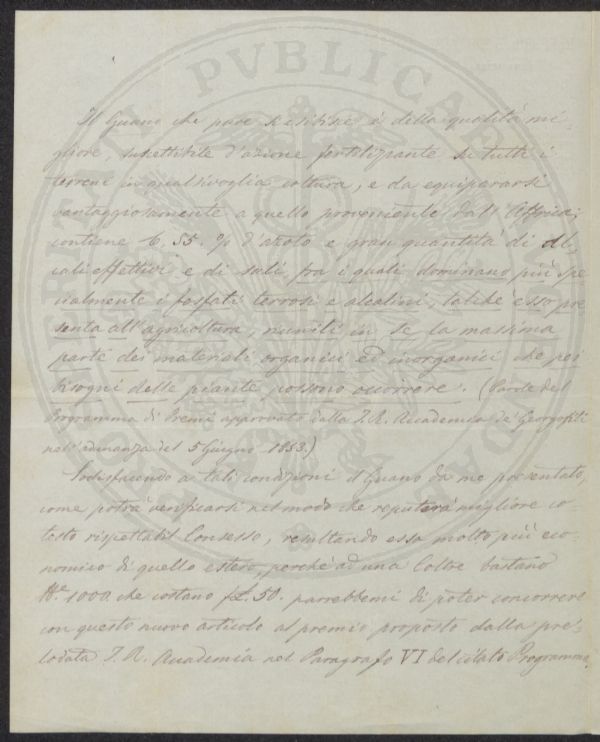 Il Guano che pare si esibisce è della qualità mi-
gliore, suscettibile d'azione fertilizzante su tutti i
terreni in qualsivoglia coltura, e da equipararsi
vantaggiosamente a quello proveniente dall'Affrica;
contiene 6. 55. % d'azoto e gran quantità di al-
cali effettivi e di sali, fra i quali dominano più spe-
cialmente i fosfati terrosi e alcalini, talchè esso pre-
senta all'agricoltura, riuniti in se la massima
parte dei materiali organici ed inorganici che pei
bisogni delle piante possono occorrere. (Parole del
Programma di Premi approvato dalla I. R. Accademia de' Georgofili
nell'adunanza del 5 Giugno 1853.)
Sodisfacendo a tali condizioni il Guano da me presentato,
come potrà verificarsi nel modo che reputerà migliore co-
testo rispettabil Consesso, resultando esso molto più eco-
nomico di quello estero, perchè ad una Coltre bastano
1000 che costano £. 50. parrebbemi di poter concorrere
con questo nuovo articolo al premio proposto dalla pre-
lodata I. R. Accademia nel Paragrafo VI del citato Programma.
PROSPERITATI PVBLICAE